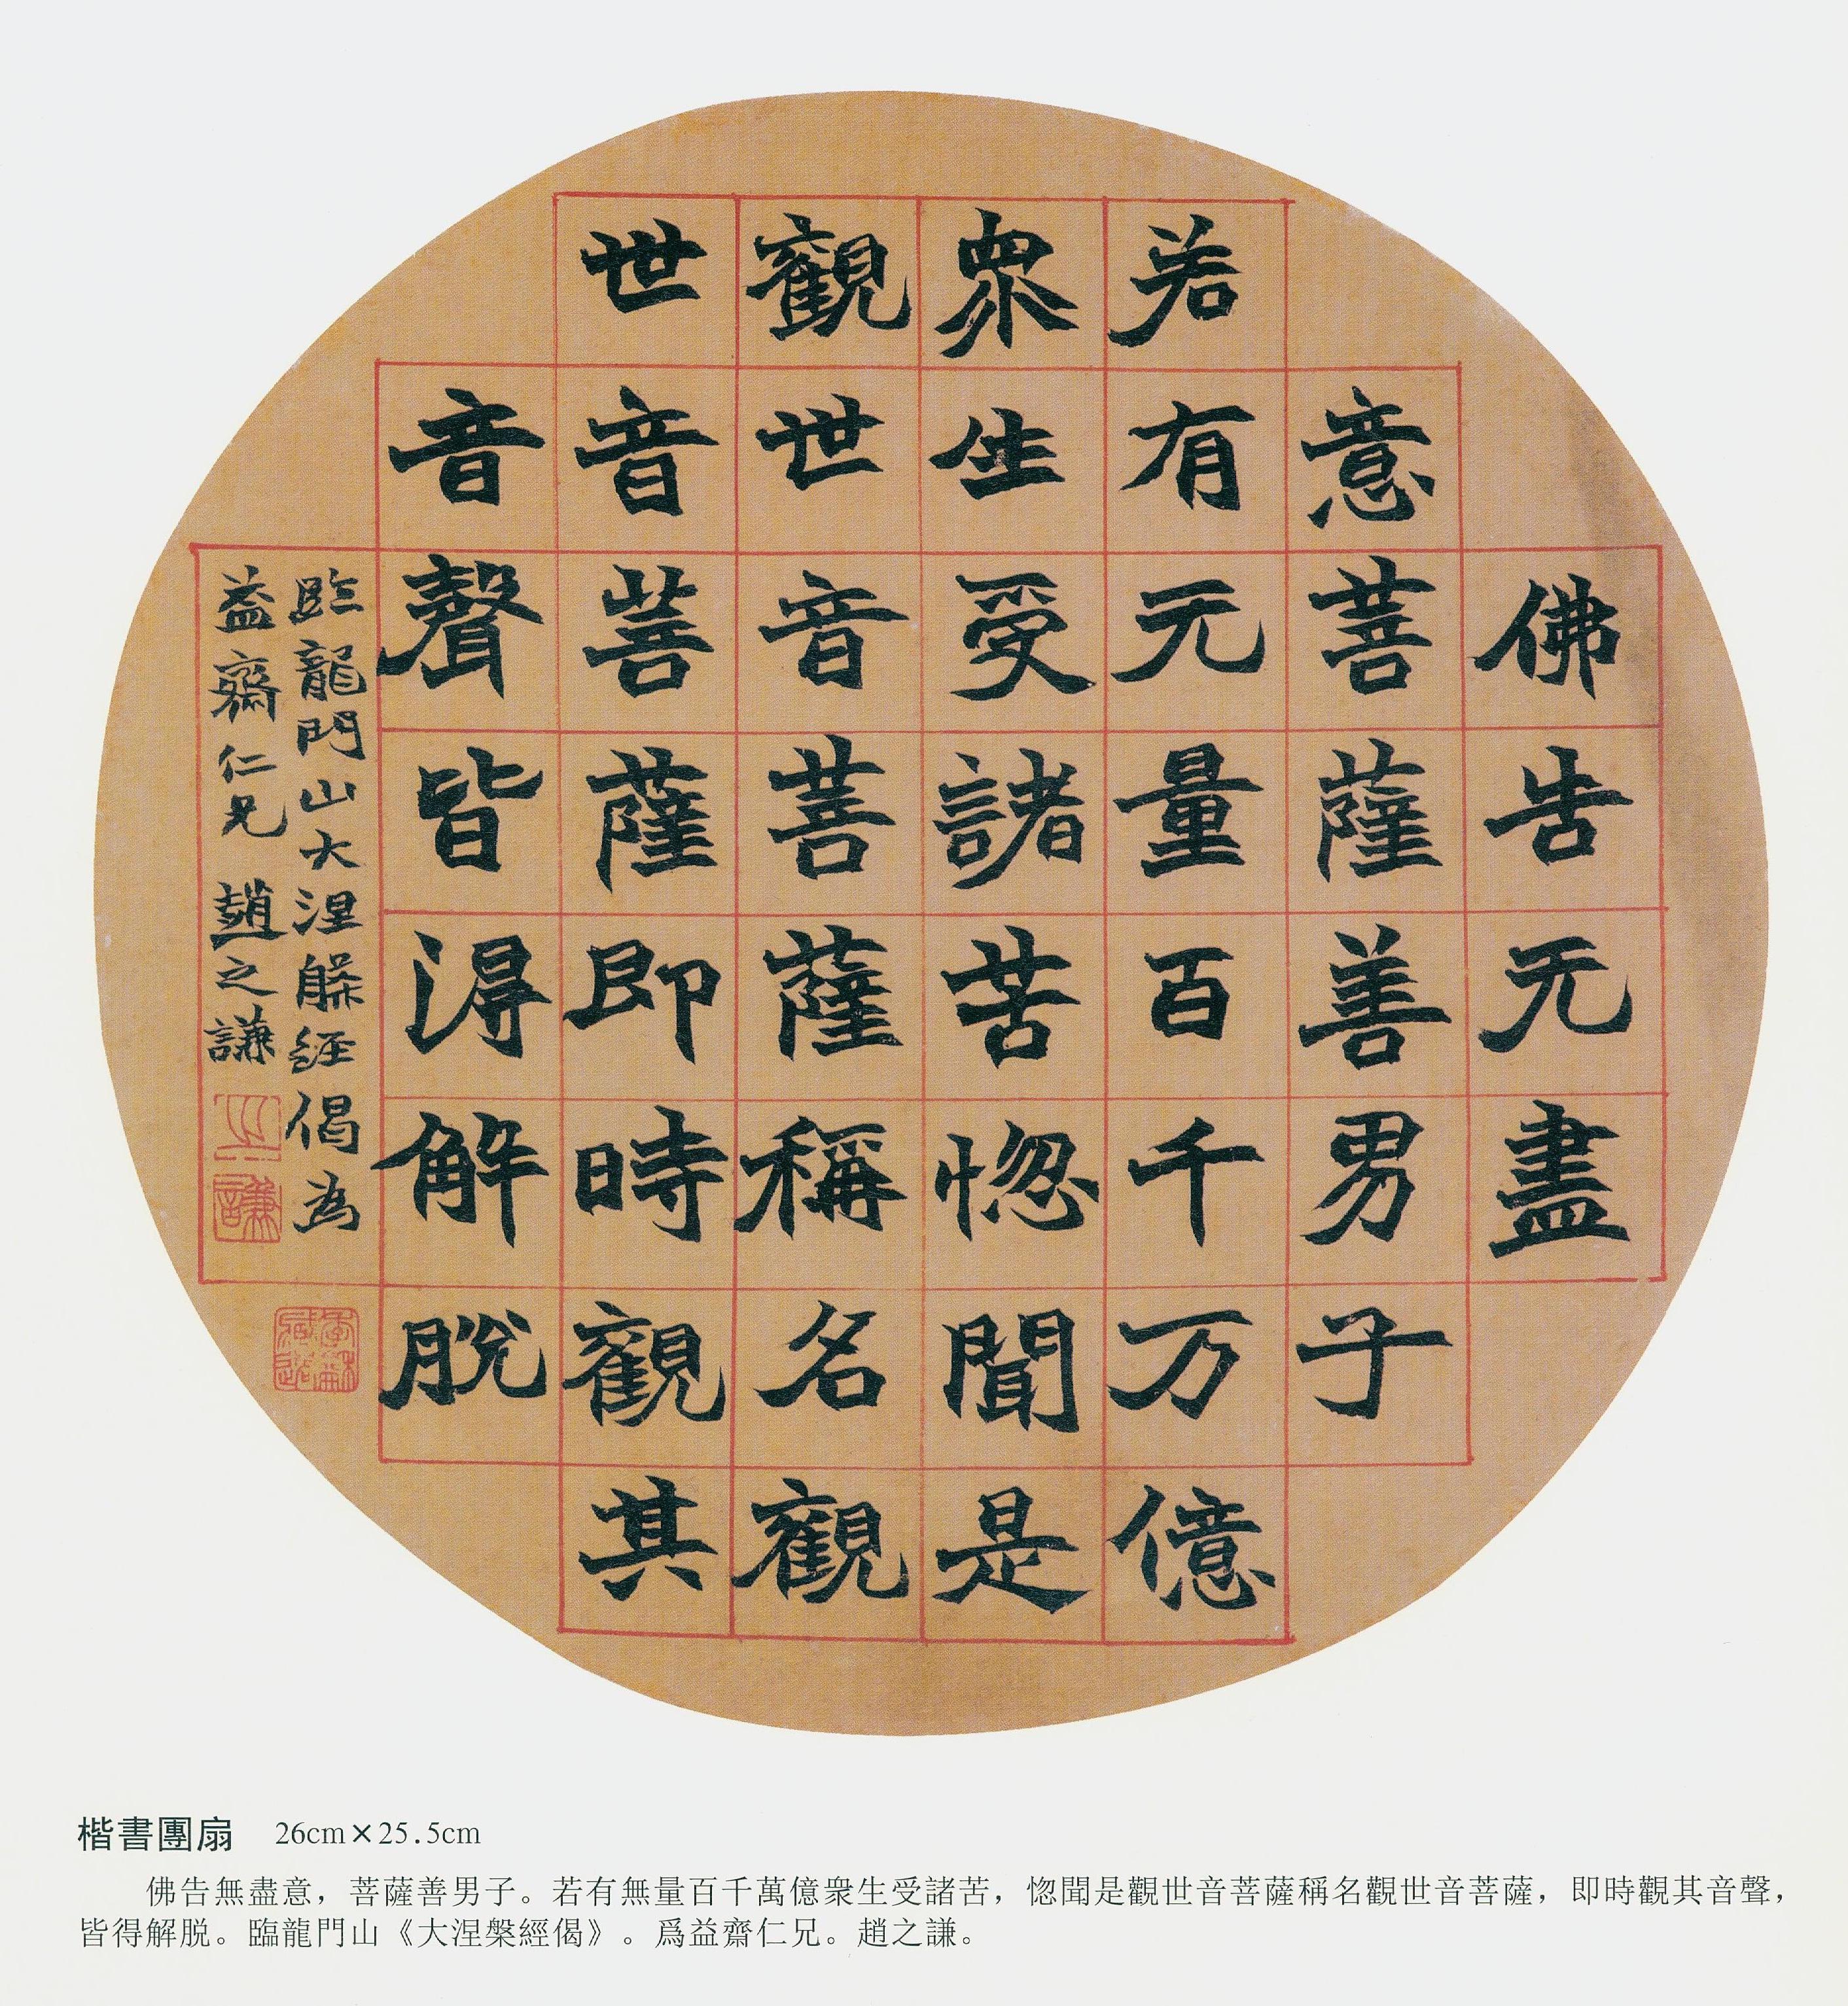 佛告无盡
意菩薩善男子
若有元量百千万億
眾生受諸苦惚聞是
觀世音菩薩稱名觀
世音菩薩即時觀其
音聲皆淂解脱
臨龍門山大涅槃經偈為
益齋仁兄 趙之謙
之謙
楷書團扇 26cm×25.5cm
佛告無盡意，菩薩善男子。若有無量百千萬億衆生受諸苦，惚聞是觀世音菩薩稱名觀世音菩薩，即時觀其音聲，
皆得解脱。臨龍門山《大涅槃經偈》。爲益齋仁兄。趙之謙。